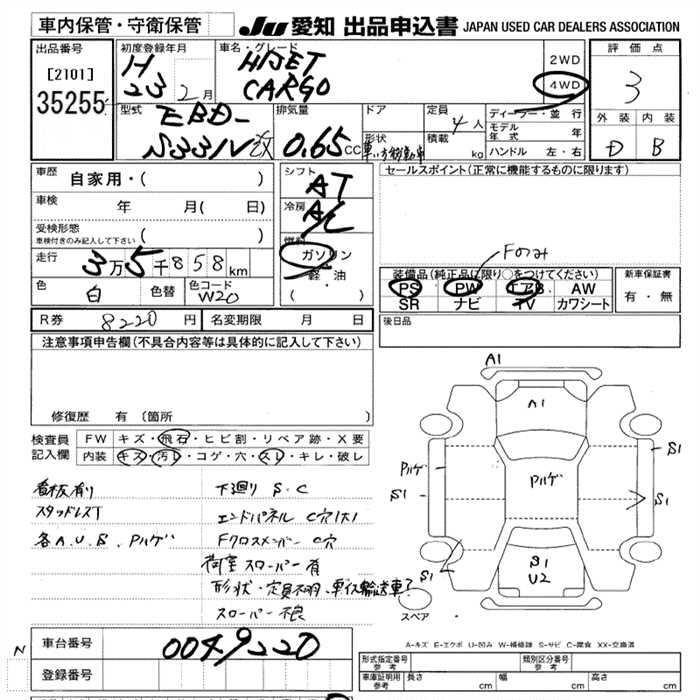 車内保管・守衛保管
JU 愛知 出品申込書 JAPAN USED CAR DEALERS ASSOCIATION
出品番号
[2101]
35255
初度登録年月
H
23 2月
車名・グレード
HIJET
CARGO
2WD
4WD
評価点
3
外装 内装
D B
型式
EBD-
S331V 改
排気量
0.65 CC
ドア
形状
定員
4人
積載
kg
ディーラー・並行
モデル年式 年
ハンドル 左・右
車歴
自家用・( )
車検
年 月( 日)
受検形態
車検付きのみ記入して下さい
( )
走行
3万5千858km
色
白
色替
色コード
W20
シフト
AT
冷房
A/C
燃料
ガソリン
軽・油
( )
セールスポイント(正常に機能するものに限ります)
Fのみ
装備品(純正品に限り○をつけてください)
PS PW エアB AW
SR ナビ TV カワシート
新車保証書
有・無
R券 8220円
名変期限 月 日
後日品
注意事項申告欄(不具合内容等は具体的に記入して下さい)
修復歴 有 〔箇所 〕
検査員記入欄
FW キズ・飛石・ヒビ割・リペア跡・X要
内装 キズ・汚レ・コゲ・穴・スレ・キレ・破レ
看板有り
スタッドレスT
各A.U.B.Pハゲ
下廻り S・C
エンドパネル C穴(大)
Fクロスメンバー C穴
荷室スローパー有
形状・定員不明、車イス輸送車?
スローパー不良
A1
A1
Pハゲ
S1
Pハゲ
S1
S1
S1
U2
S1
S1
スペア
A-キズ E-エクボ U-凹み W-補修跡 S-サビ C-腐食 XX-交換済
N
車台番号 0049220
登録番号
形式指定番号
参考
類別区分番号
参考
車庫証明用
参考
長さ cm
幅 cm
高さ cm